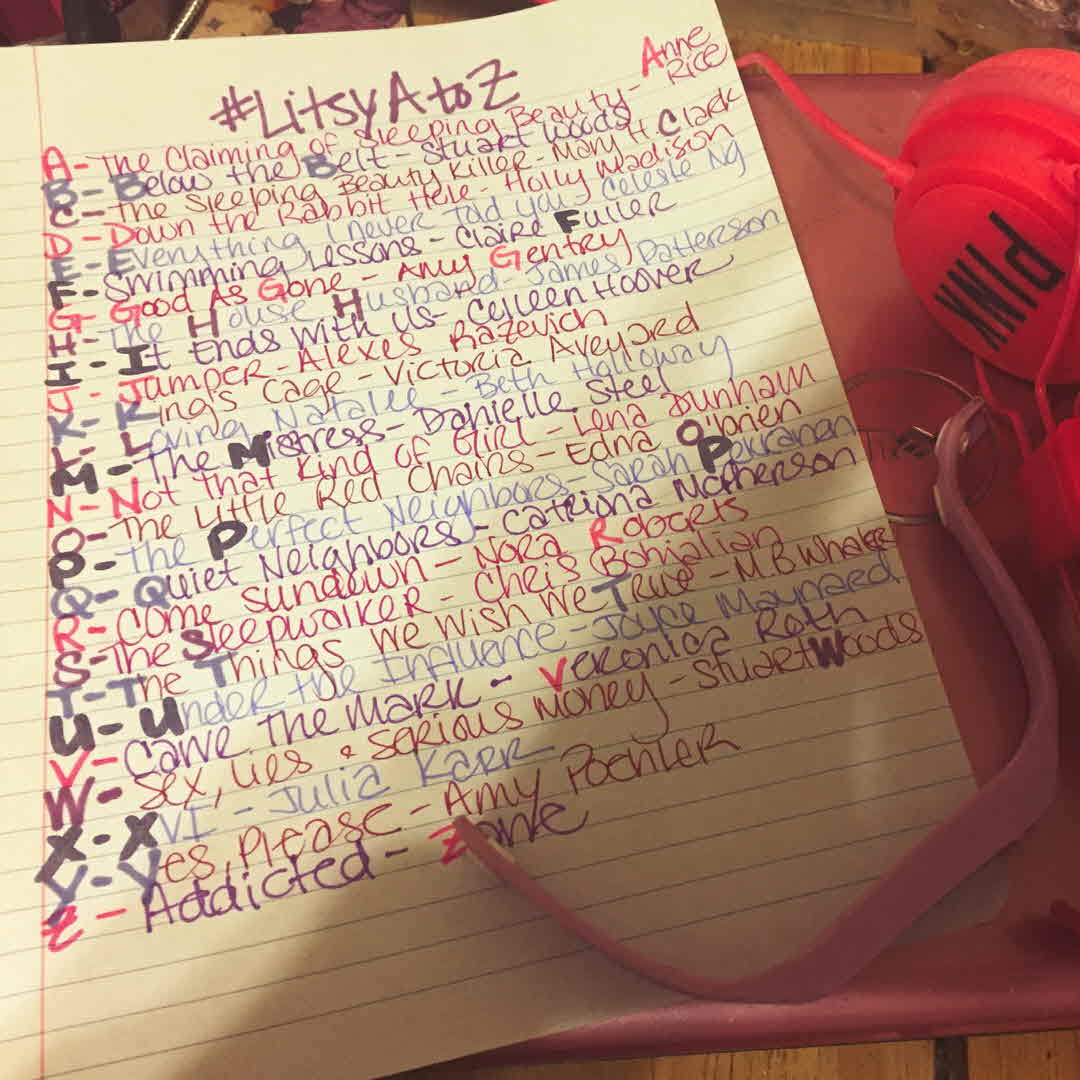 #LitsyAtoZ
A- The Claiming of Sleeping Beauty- Anne Rice
B- Below the Belt - Stuart Woods
C- The Sleeping Beauty Killer- Mary H. Clark
D- Down the Rabbit Hole- Holly Madison
E- Everything I Never Told You- Celeste Ng
F- Swimming Lessons- Claire Fuller
G- Good As Gone- Amy Gentry
H- The House Husband- James Patterson
I- It Ends With Us- Colleen Hoover
J- Jumper- Alexes Razevich
K- King's Cage- Victoria Aveyard
L- Loving Natalee- Beth Holloway
M- The Mistress- Danielle Steel
N- Not That Kind of Girl- Lena Dunham
O- The Little Red Chairs- Edna O'Brien
P- The Perfect Neighbors- Sarah Pekkanen
Q- Quiet Neighbors- Catriona McPherson
R- Come Sundown- Nora Roberts
S- The Sleepwalker- Chris Bohjalian
T- The Things We Wish We True- M.B Whalen
U- Under the Influence- Joyce Maynard
V- Carve The Mark- Veronica Roth
W- Sex, Lies & Serious Money- Stuart Woods
X- XVI- Julia Karr
Y- Yes, Please- Amy Poehler
Z- Addicted- Zane
PINK